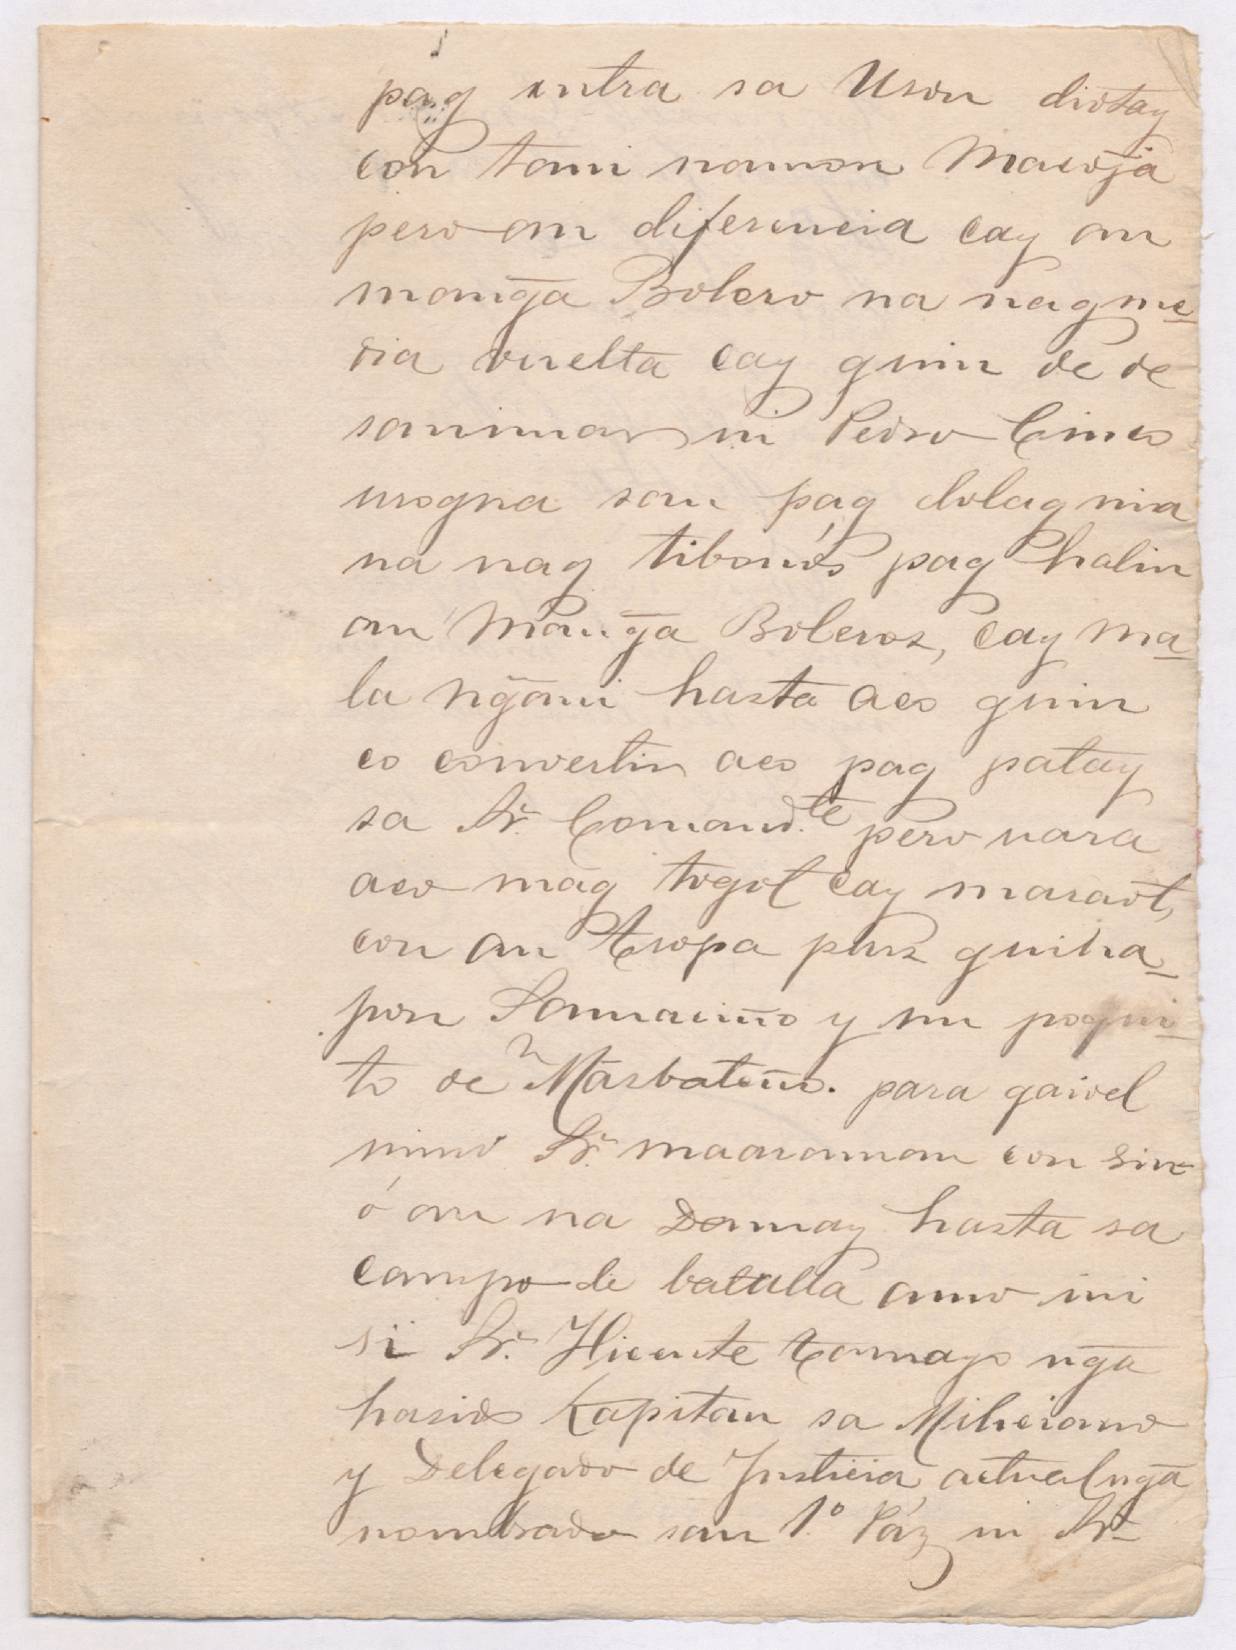 pag entra sa Uson diotay
con tami namon Macojâ
pero an diferencia cay an
manḡa Bolero na nagme-
dia vuelta cay guin de de
saniman ni Pedro Cinco
usogna san pag dolag nia
na nag tibonós pag halin
an Manḡa Boleros, cay ma-
la nḡani hasta aco guin
co convertin aco pag patay
sa Sr. Comand.te pero uara
aco mag togot cay maraot,
con an tropa purz guiha-
pon Samareño y un poqui-
to de Masbateño. para gaivel
nimo Sr. maaraman con sin
ó an na Damay hasta sa
campo de batalla amo ini
si Sr. Vicente Tamayo nḡa
hasido Kapitan sa Miliciano
y Delegado de Justicia actual nḡa
nombrado san 1.º Páz ni Sr